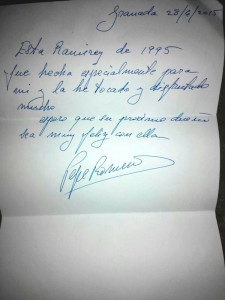 Granada 28/6/2015
Esta Ramirez de 1995
fue hecha especialmente para
mi y la he tocado y disfrutado
mucho
espero que su proximo dueño
sea muy feliz con ella
Pepe Romero